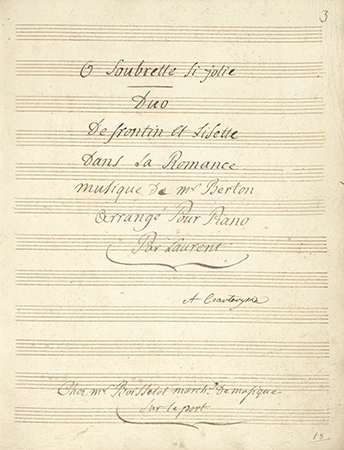 3
O Soubrette Si jolie
Duo
De frontin Et Lisette
Dans La Romance
musique De mr Berton
Arrangé Pour Piano
Par Laurent
A Czartoryska
Chez mr Boisselot march.d de musique
Sur le port
13